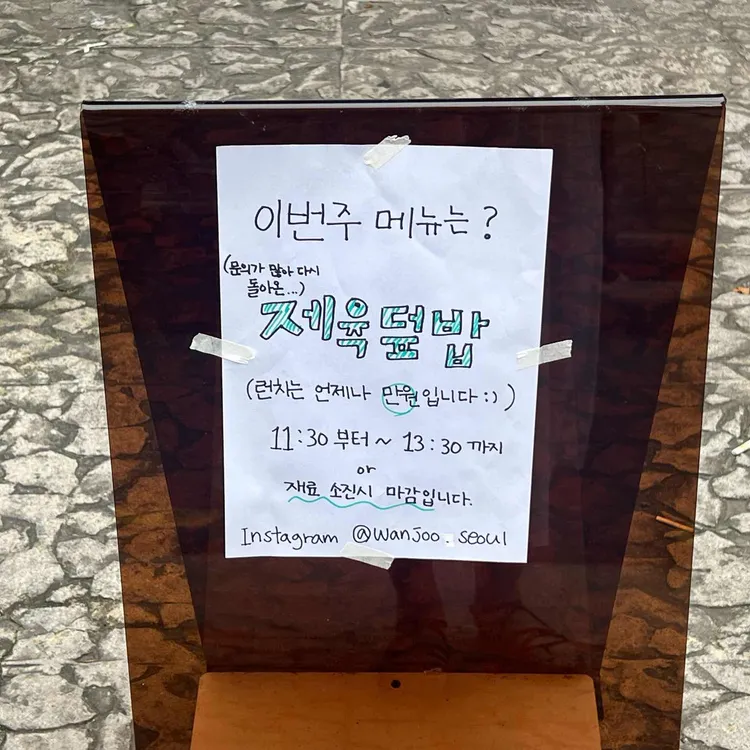 이번주 메뉴는?
(문의가 많아 다시
돌아온...)
제육덮밥
(런치는 언제나 만원입니다 :) )
11:30 부터 ~ 13:30 까지
or
재료 소진시 마감입니다.
Instagram @wanjoo.seoul